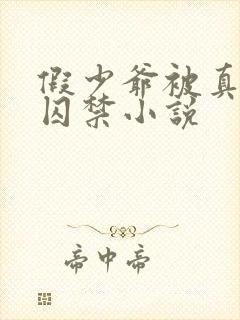 假少爷被真
囚禁小说
帝中帝